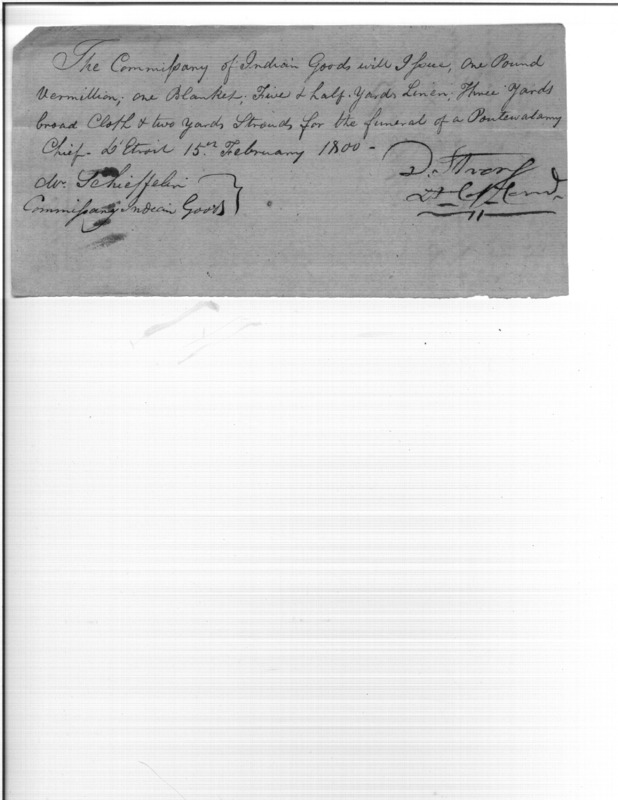 The Commissany of Indian Goods will Issue, one Pound
Vermillion; one Blanket; Five & half Yards Linen. Three Yards
broad Cloth & two Yards Strouds for the funeral of a Poutewatamy
Chief- D'Etroit 15th February 1800-
D. Strong
Mr. Schieffelin
Lt. Col. Comd.
Commissany Indian Goods